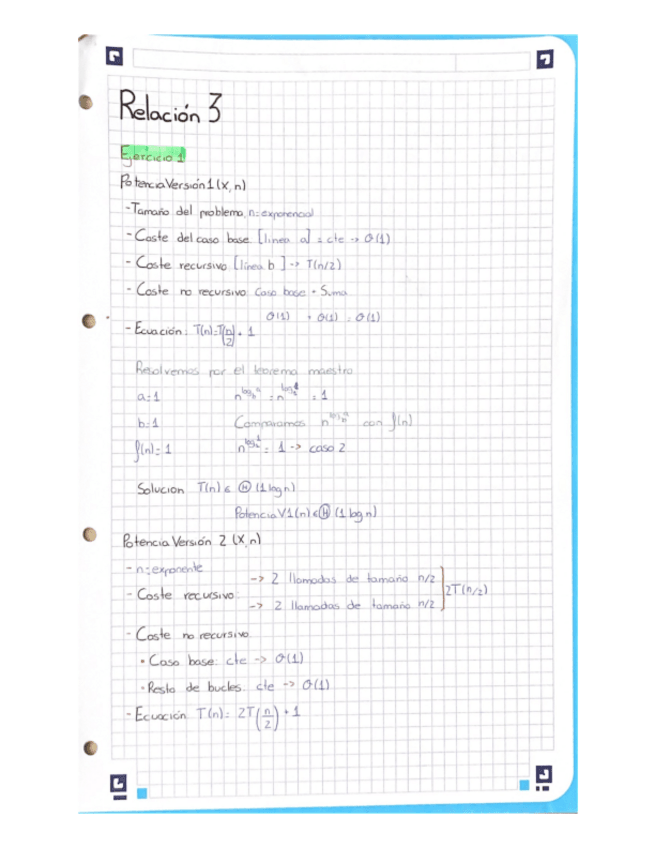 Relación 3
Ejercicio 1
PotenciaVersión1(x, n)
- Tamaño del problema n=exponencial
- Coste del caso base [línea a] = cte -> O(1)
- Coste recursivo [línea b] -> T(n/2)
- Coste no recursivo: Caso base + Suma
O(1) + O(1) = O(1)
- Ecuación: T(n)=T(n/2)+1
Resolvemos por el teorema maestro
a=1 n^log_b^a = n^log_2^1 = 1
b=1 Comparamos n^log_b^a con f(n)
f(n)=1 n^log_2^1 = 1 -> caso 2
Solucion T(n) ∈ Θ(1 log n)
PotenciaV1(n) ∈ Θ(1 log n)
Potencia Versión 2 (x, n)
- n=exponente
-> 2 llamadas de tamaño n/2
- Coste recursivo: 2T(n/2)
-> 2 llamadas de tamaño n/2
- Coste no recursivo
• Caso base: cte -> O(1)
• Resto de bucles: cte -> O(1)
- Ecuación T(n)= 2T(n/2)+1